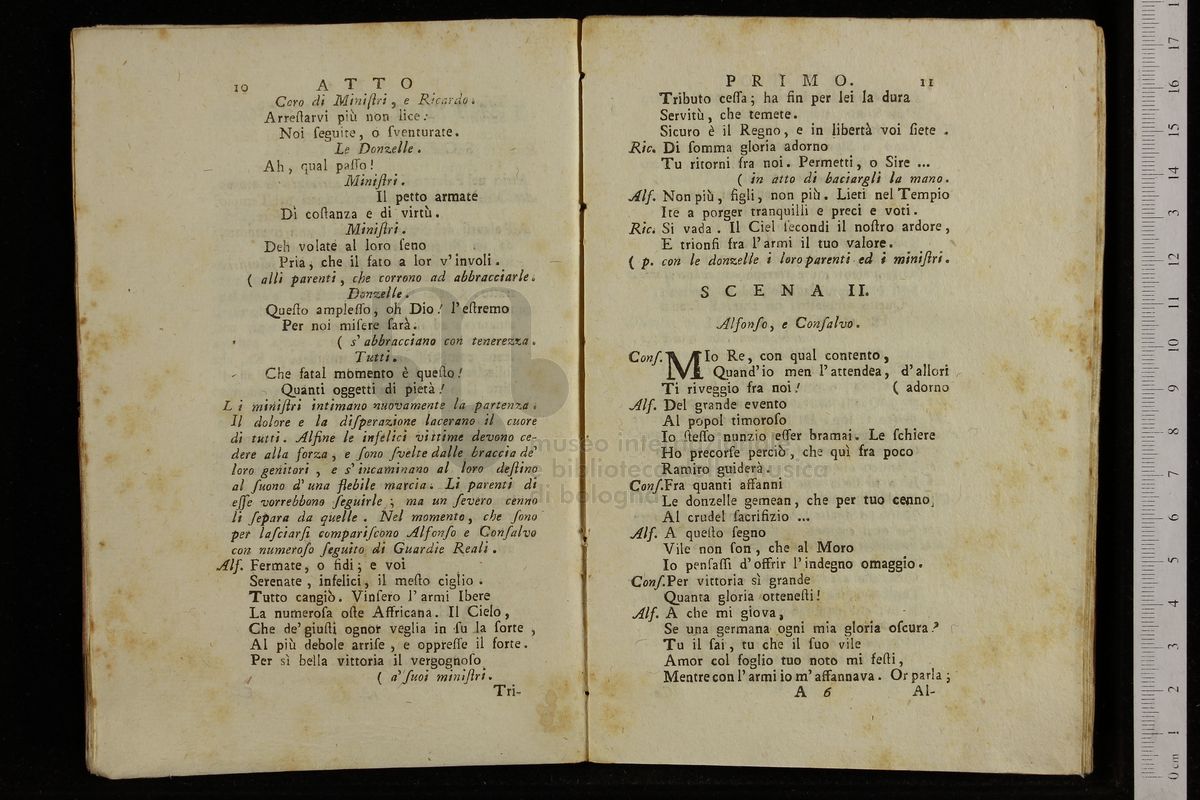 10 ATTO
Coro di Miniſtri, e Ricardo.
Arreſtarvi più non lice:
Noi ſeguite, o ſventurate.
Le Donzelle.
Ah, qual paſſo!
Miniſtri.
Il petto armate
Di coſtanza e di virtù.
Miniſtri.
Deh volate al loro ſeno
Pria, che il fato a lor v'involi.
( alli parenti, che corrono ad abbracciarle.
Donzelle.
Queſto ampleſſo, oh Dio! l'eſtremo
Per noi miſere ſarà.
( s'abbracciano con tenerezza.
Tutti.
Che fatal momento è queſto!
Quanti oggetti di pietà!
Li miniſtri intimano nuovamente la partenza.
Il dolore e la diſperazione lacerano il cuore
di tutti. Alfine le infelici vittime devono ce-
dere alla forza, e ſono ſvelte dalle braccia de'
loro genitori, e s'incaminano al loro deſtino
al ſuono d'una flebile marcia. Li parenti di
eſſe vorrebbono ſeguirle; ma un ſevero cenno
li ſepara da quelle. Nel momento, che ſono
per laſciarſi compariſcono Alfonſo e Conſalvo
con numeroſo ſeguito di Guardie Reali.
Alf. Fermate, o fidi; e voi
Serenate, infelici, il meſto ciglio.
Tutto cangiò. Vinſero l'armi Ibere
La numeroſa oſte Affricana. Il Cielo,
Che de'giuſti ognor veglia in ſu la ſorte,
Al più debole arriſe, e oppreſſe il forte.
Per sì bella vittoria il vergognoſo
( a'ſuoi miniſtri.
Tri-
PRIMO. 11
Tributo ceſſa; ha fin per lei la dura
Servitù, che temete.
Sicuro è il Regno, e in libertà voi ſiete.
Ric. Di ſomma gloria adorno
Tu ritorni fra noi. Permetti, o Sire ...
( in atto di baciargli la mano.
Alf. Non più, figli, non più. Lieti nel Tempio
Ite a porger tranquilli e preci e voti.
Ric. Si vada. Il Ciel ſecondi il noſtro ardore,
E trionfi fra l'armi il tuo valore.
( p. con le donzelle i loro parenti ed i miniſtri.
SCENA II.
Alfonſo, e Conſalvo.
Conſ. MIo Re, con qual contento,
Quand'io men l'attendea, d'allori
Ti riveggio fra noi! ( adorno
Alf. Del grande evento
Al popol timoroſo
Io ſteſſo nunzio eſſer bramai. Le ſchiere
Ho precorſe perciò, che quì fra poco
Ramiro guiderà.
Conſ. Fra quanti affanni
Le donzelle gemean, che per tuo cenno,
Al crudel ſacrifizio ...
Alf. A queſto ſegno
Vile non ſon, che al Moro
Io penſaſſi d'offrir l'indegno omaggio.
Conſ. Per vittoria sì grande
Quanta gloria otteneſti!
Alf. A che mi giova,
Se una germana ogni mia gloria oſcura?
Tu il ſai, tu che il ſuo vile
Amor col foglio tuo noto mi feſti,
Mentre con l'armi io m'affannava. Or parla;
A 6 Al-
museo internazionale
e biblioteca della musica
di bologna
17
16
15
14
13
12
11
10
9
8
7
6
5
4
3
2
1
0 cm